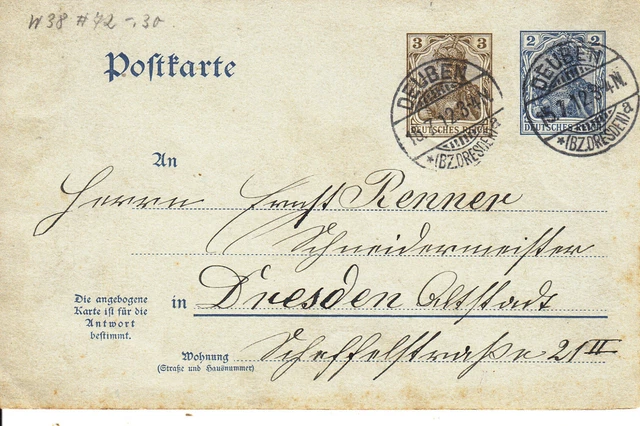 W38 #72 -.30
Postkarte
3 3
DEUTSCHES REICH
2 2
DEUTSCHES REICH
DEUBEN
15.7.12.3-4N.
*(BZ.DRESDEN)a
DEUBEN
15.7.12.3-4N.
*(BZ.DRESDEN)a
An
Herrn Ernst Renner
Schneidermeister
Die angebogene
Karte ist für die
Antwort
bestimmt.
in Dresden Altstadt
Wohnung
(Straße und Hausnummer)
Scheffelstraße 21 II